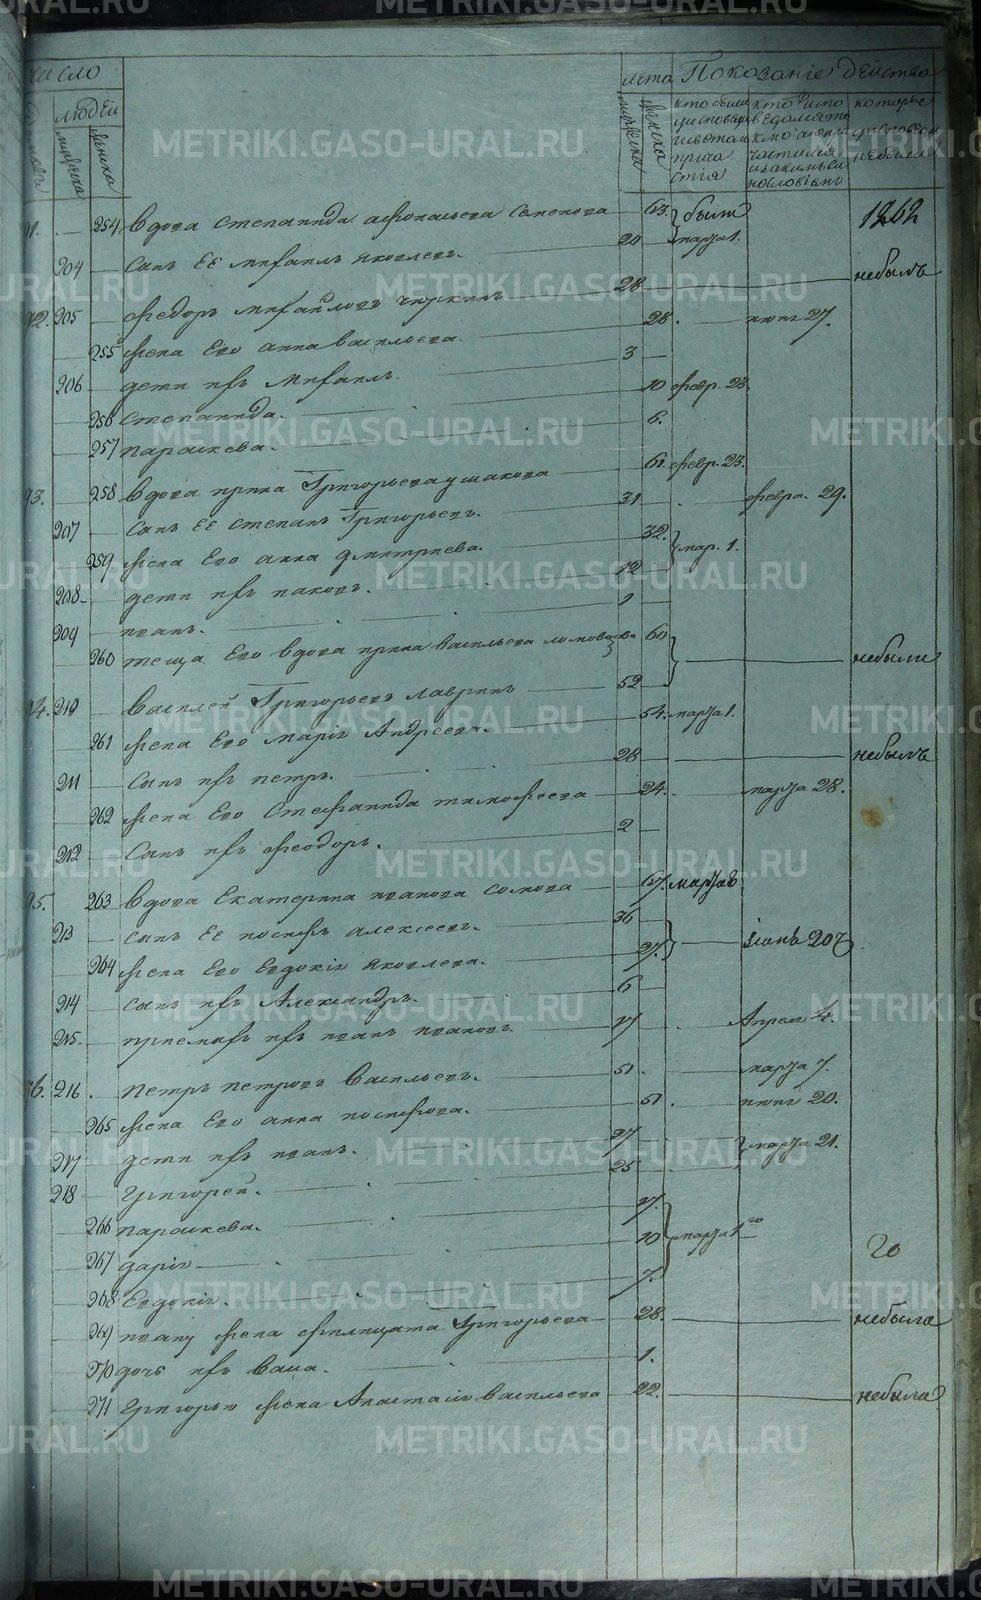 число
людей
мужска
женска
лета
мужска
женска
Показанїе действа
кто были
у исповеди
и святом
прича
стїя
кто исповедался а не при
частился
и за каким ви
нословїем
которые
у исповеди
не были
1262
91. 254 вдова степанида афонасьева Семенова 63. были
204 сынъ Ее михаилъ яковлевъ. 20 марта 1.
92. 205 федоръ михайловъ чиркинъ 28 небылъ
255 жена Его анна васильева 28. июня 27.
206 дети ихъ михаилъ. 3
256 степанида. 10 февр. 23.
257 параскева. 6.
93. 258 вдова ирина Григорьева ушакова 61. февр. 23.
207 сынъ Ее степанъ Григорьевъ. 31 феврал. 29.
259 жена Его анна дмитриева. 32. мар. 1.
208 дети ихъ яковъ. 12
209 иванъ. 1
260 теща Его вдова ирина васильева 60 небыли
94. 210 василей Григорьевъ лавринъ 52
261 жена Его марїя Андреева. 54. марта 1.
211 сынъ ихъ петръ. 28 небылъ
262 жена Его Стефанида тимофеева 24. марта 28.
212 Сынъ ихъ феодоръ. 2
95. 263 вдова Екатерина иванова сомова 67. марта 8
213 сынъ Ее иосифъ алексеевъ. 36 июня 20
264 жена Его Евдокїя яковлева. 27.
214 сынъ ихъ Александръ. 6
215. приемышъ ихъ иванъ ивановъ 17 Апреля 4.
96. 216. Петръ петровъ Васильевъ. 51. марта 7.
265 жена Его анна иосифова. 51. июня 20.
217 дети ихъ иванъ. 27 марта 21.
218 Григорей. 25
266 параскева. 17. марта 1го
267 дарїя 10
268 Евдокїя. 7.
269 ивану жена филицата Григорьева 28. небыла
270 дочь ихъ 1.
271 Григорью жена Анастасїя васильева 22. небыла
20
METRIKI.GASO-URAL.RU